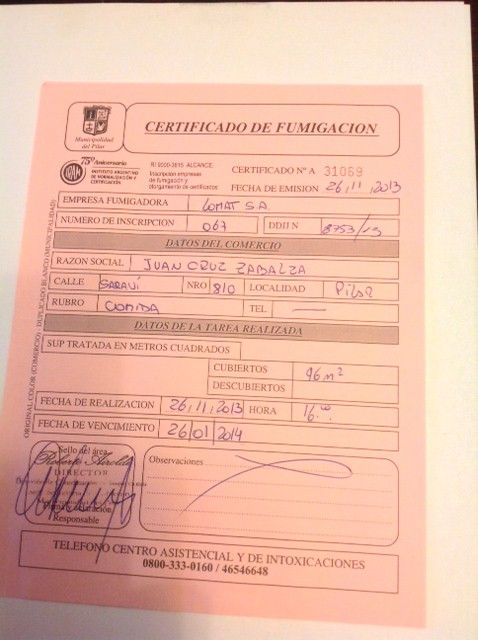 CERTIFICADO DE FUMIGACION
Municipalidad
del Pilar
75º Aniversario
IRAM
INSTITUTO ARGENTINO
DE NORMALIZACIÓN Y
CERTIFICACIÓN
RI 9000-3815 ALCANCE:
Inscripcion empresas
de fumigación y
otorgamiento de certificados
CERTIFICADO Nº A 31069
FECHA DE EMISION 26, 11, 2013
EMPRESA FUMIGADORA LOMAT S.A.
NUMERO DE INSCRIPCION 067 DDJJ N 8753/13
DATOS DEL COMERCIO
RAZON SOCIAL JUAN CRUZ ZABALZA
CALLE SARAVÍ NRO 810 LOCALIDAD PILAR
RUBRO COMIDA TEL —
DATOS DE LA TAREA REALIZADA
SUP TRATADA EN METROS CUADRADOS
CUBIERTOS 96 m²
DESCUBIERTOS
FECHA DE REALIZACION 26, 11, 2013 HORA 16.00
FECHA DE VENCIMIENTO 26 01 2014
ORIGINAL COLOR (COMERCIO) - DUPLICADO BLANCO (MUNICIPALIDAD)
Sello del área
Roberto
DIRECTOR
Firma y aclaración
Responsable
Observaciones
TELEFONO CENTRO ASISTENCIAL Y DE INTOXICACIONES
0800-333-0160 / 46546648